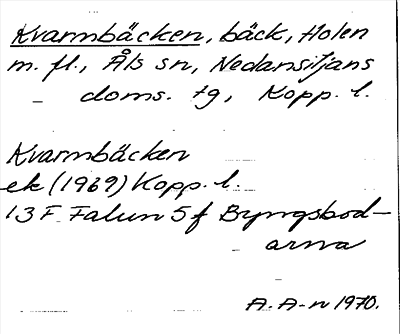 Kvarnbäcken, bäck, Holen
m. fl., Åls sn, Nedansiljans
doms. tg, Kopp. l.
Kvarnbäcken
ek (1969) Kopp. l.
13 F Falun 5 f Bryngsbod-
arna
A. A-n 1970.